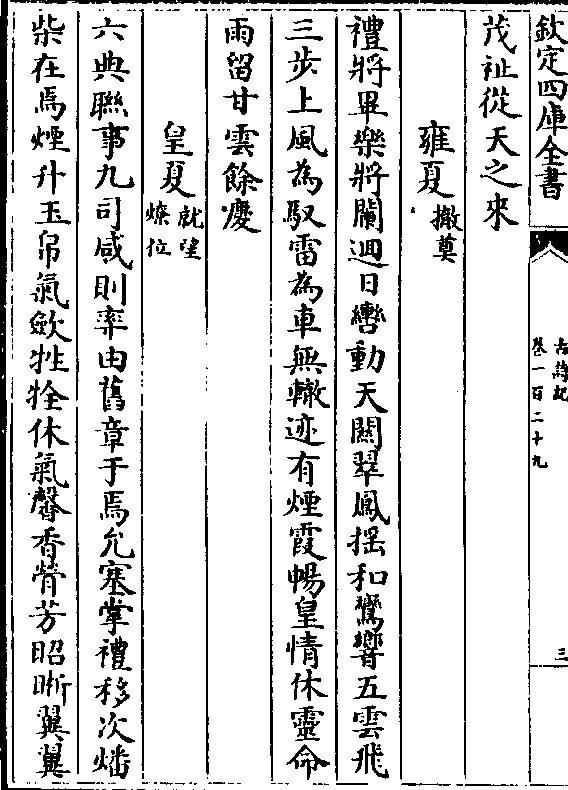 欽定四庫全書
古詩紀
卷一百二十九
三
茂祉從天之來
雍夏撤奠
禮將畢樂將闌迴日轡動天闗翠鳳揺和鸞響五雲飛
三步上風為馭雷為車無轍迹有煙霞暢皇情休靈命
雨留甘雲餘慶
皇夏就望燎位
六典聯事九司咸則率由舊章于焉允塞掌禮移次燔
柴在焉煙升玉帛氣歛牲牷休氣馨香膋芳昭晰翼翼